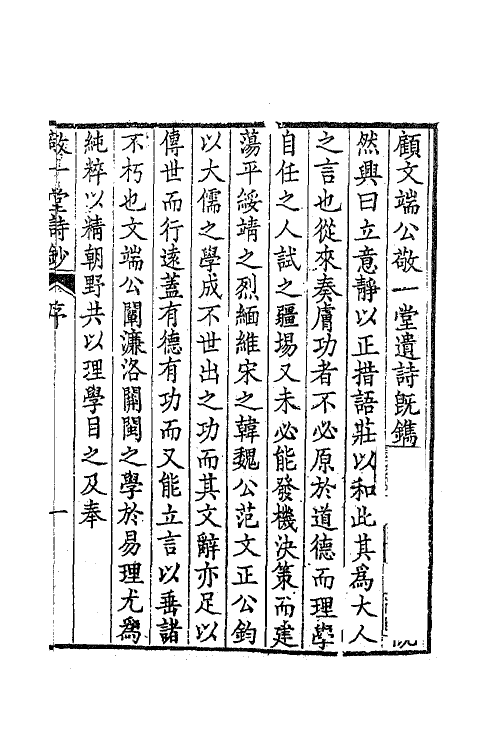 顧文端公敬一堂遺詩旣鐫
然興曰立意靜以正措語莊以和此其爲大人
之言也從來奏膚功者不必原於道德而理學
自任之人試之疆埸又未必能發機決策而建
蕩平綏靖之烈緬維宋之韓魏公范文正公鈞
以大儒之學成不世出之功而其文辭亦足以
傳世而行遠蓋有德有功而又能立言以垂諸
不朽也文端公闡濂洛關閩之學於易理尤爲
純粹以精朝野共以理學目之及奉
敬一堂詩鈔 序 一